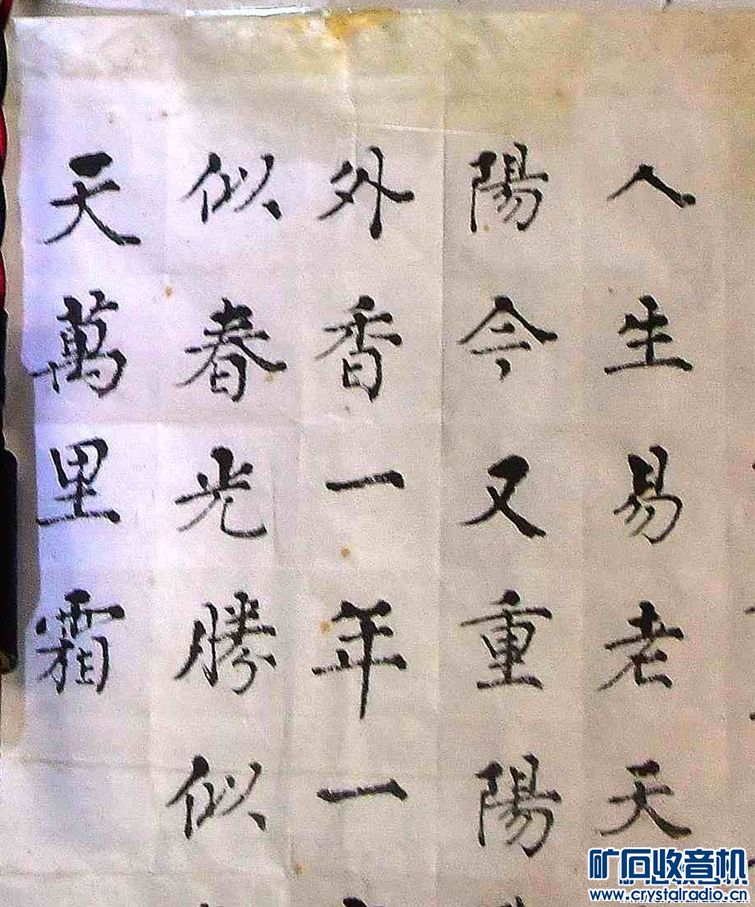 人生易老天
陽今又重陽
外香一年一
似春光勝似
天萬里霜
矿石收音机
www.crystalradio.cn